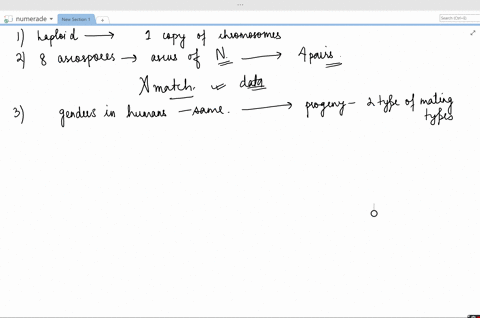 numerade
New Section 1
1) haploid → 1 copy of chromosomes
2) 8 ascospores → ascus of N. → 4 pairs.
X match. w data
3) genders in humans — same. → progeny – 2 type of mating
types